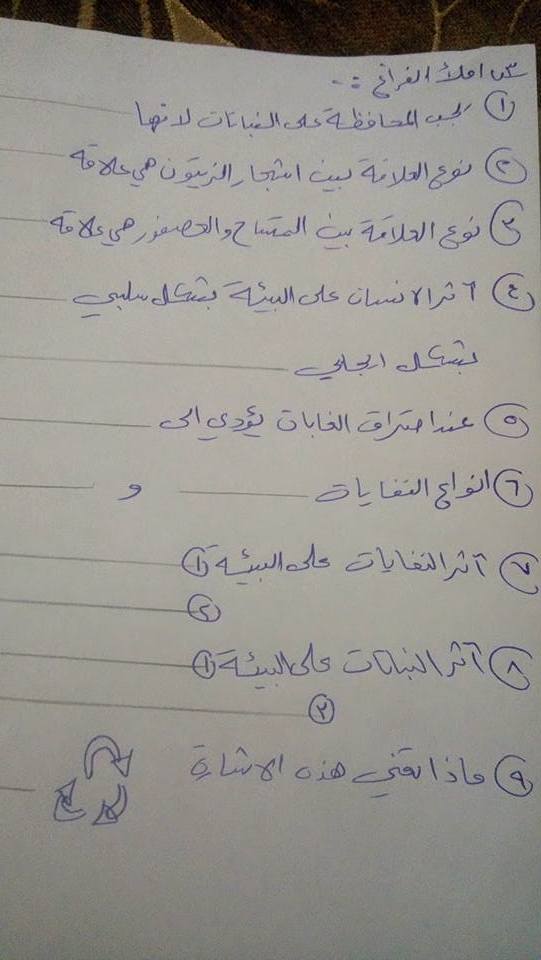 س املأ الفراغ :-
① يجب المحافظة على النباتات لانها
② نوع العلاقة بين اشجار الزيتون هي علاقة
③ نوع العلاقة بين التمساح والعصفور هي علاقة
④ آثر الانسان على البيئة بشكل سلبي
بشكل ايجابي
⑤ عند احتراق الغابات يؤدي الى
⑥ انواع النفايات و
⑦ آثر النفايات على البيئة ①
②
⑧ آثر النباتات على البيئة ①
②
⑨ ماذا تعني هذه الاشارة